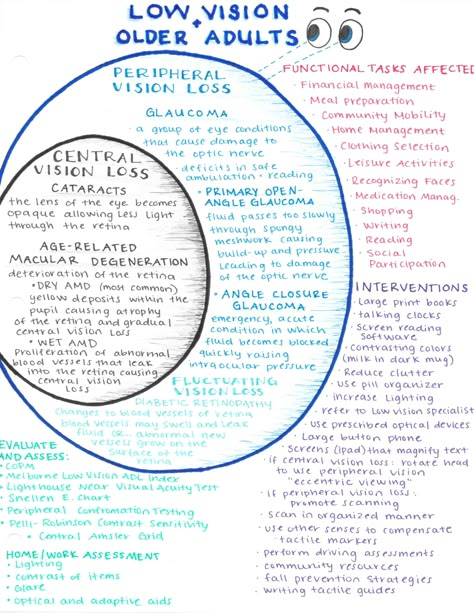 LOW VISION
+
OLDER ADULTS
PERIPHERAL
VISION LOSS
GLAUCOMA
a group of eye conditions
that cause damage to
the optic nerve
· deficits in safe
ambulation + reading
• PRIMARY OPEN-
ANGLE GLAUCOMA
fluid passes too slowly
through spongy
meshwork causing
build-up and pressure
leading to damage
of the optic nerve
• ANGLE CLOSURE
GLAUCOMA
emergency, acute
condition in which
fluid becomes blocked
quickly raising
intraocular pressure
CENTRAL
VISION LOSS
CATARACTS
the lens of the eye becomes
opaque allowing less light
through the retina
AGE-RELATED
MACULAR DEGENERATION
deterioration of the retina
• DRY AMD (most common)
yellow deposits within the
pupil causing atrophy
of the retina and gradual
central vision loss
• WET AMD
Proliferation of abnormal
blood vessels that leak
into the retina causing
central vision
loss
FLUCTUATING
VISION LOSS
DIABETIC RETINOPATHY
changes to blood vessels of retina
blood vessels may swell and leak
fluid OR... abnormal new
vessels grow on the
surface of the
retina
FUNCTIONAL TASKS AFFECTED
· Financial management
· Meal preparation
· Community Mobility
· Home Management
· Clothing Selection
· Leisure Activities
· Recognizing Faces
· Medication Manag.
· Shopping
· Writing
· Reading
· Social
Participation
INTERVENTIONS
· Large print books
· talking clocks
· Screen reading
software
· Contrasting colors
(milk in dark mug)
· Reduce clutter
· use pill organizer
· increase lighting
· refer to low vision specialist
· use prescribed optical devices
· Large button phone
· Screens (ipad) that magnify text
· if central vision loss: rotate head
to use peripheral vision
"eccentric viewing"
· if peripheral vision loss:
promote scanning
· Scan in organized manner
· use other senses to compensate
· tactile markers
· perform driving assessments
· community resources
· fall prevention strategies
· writing tactile guides
EVALUATE
AND ASSESS:
• COPM
• Melborne Low Vision ADL Index
• Lighthouse Near Visual Acuity Test
• Snellen E. Chart
• Peripheral Confromation Testing
• Pelli-Robinson Contrast Sensitivity
• Central Amsler Grid
HOME/WORK ASSESSMENT
• Lighting
• contrast of items
• Glare
• Optical and adaptive aids